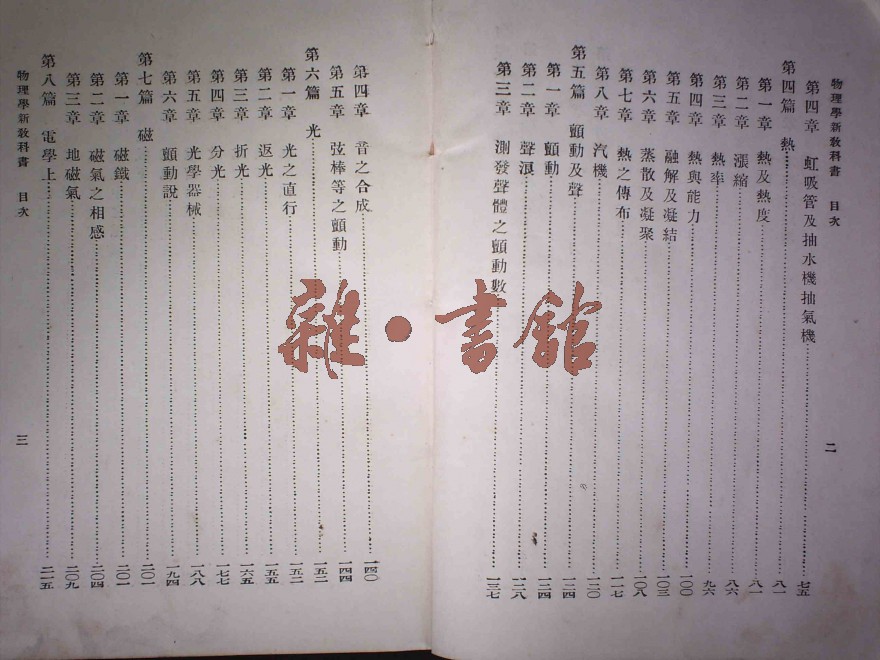 物理學新教科書 目次 二
第四章 虹吸管及抽水機抽氣機 七五
第四篇 熱 八一
第一章 熱及熱度 八一
第二章 漲縮 八六
第三章 熱率 九六
第四章 熱與能力 一〇〇
第五章 融解及凝結 一〇三
第六章 蒸散及凝聚 一〇八
第七章 熱之傳布 一一七
第八章 汽機 一二〇
第五篇 顫動及聲 一二四
第一章 顫動 一二四
第二章 聲浪 一二八
第三章 測發聲體之顫動數 一三七
第四章 音之合成 一四〇
第五章 弦棒等之顫動 一四四
第六篇 光 一五二
第一章 光之直行 一五二
第二章 返光 一五五
第三章 折光 一六五
第四章 分光 一七七
第五章 光學器械 一八八
第六章 顫動說 一九四
第七篇 磁 二〇一
第一章 磁鐵 二〇一
第二章 磁氣之相感 二〇四
第三章 地磁氣 二〇九
第八篇 電學上 二一五
物理學新教科書 目次 三
雜·書館